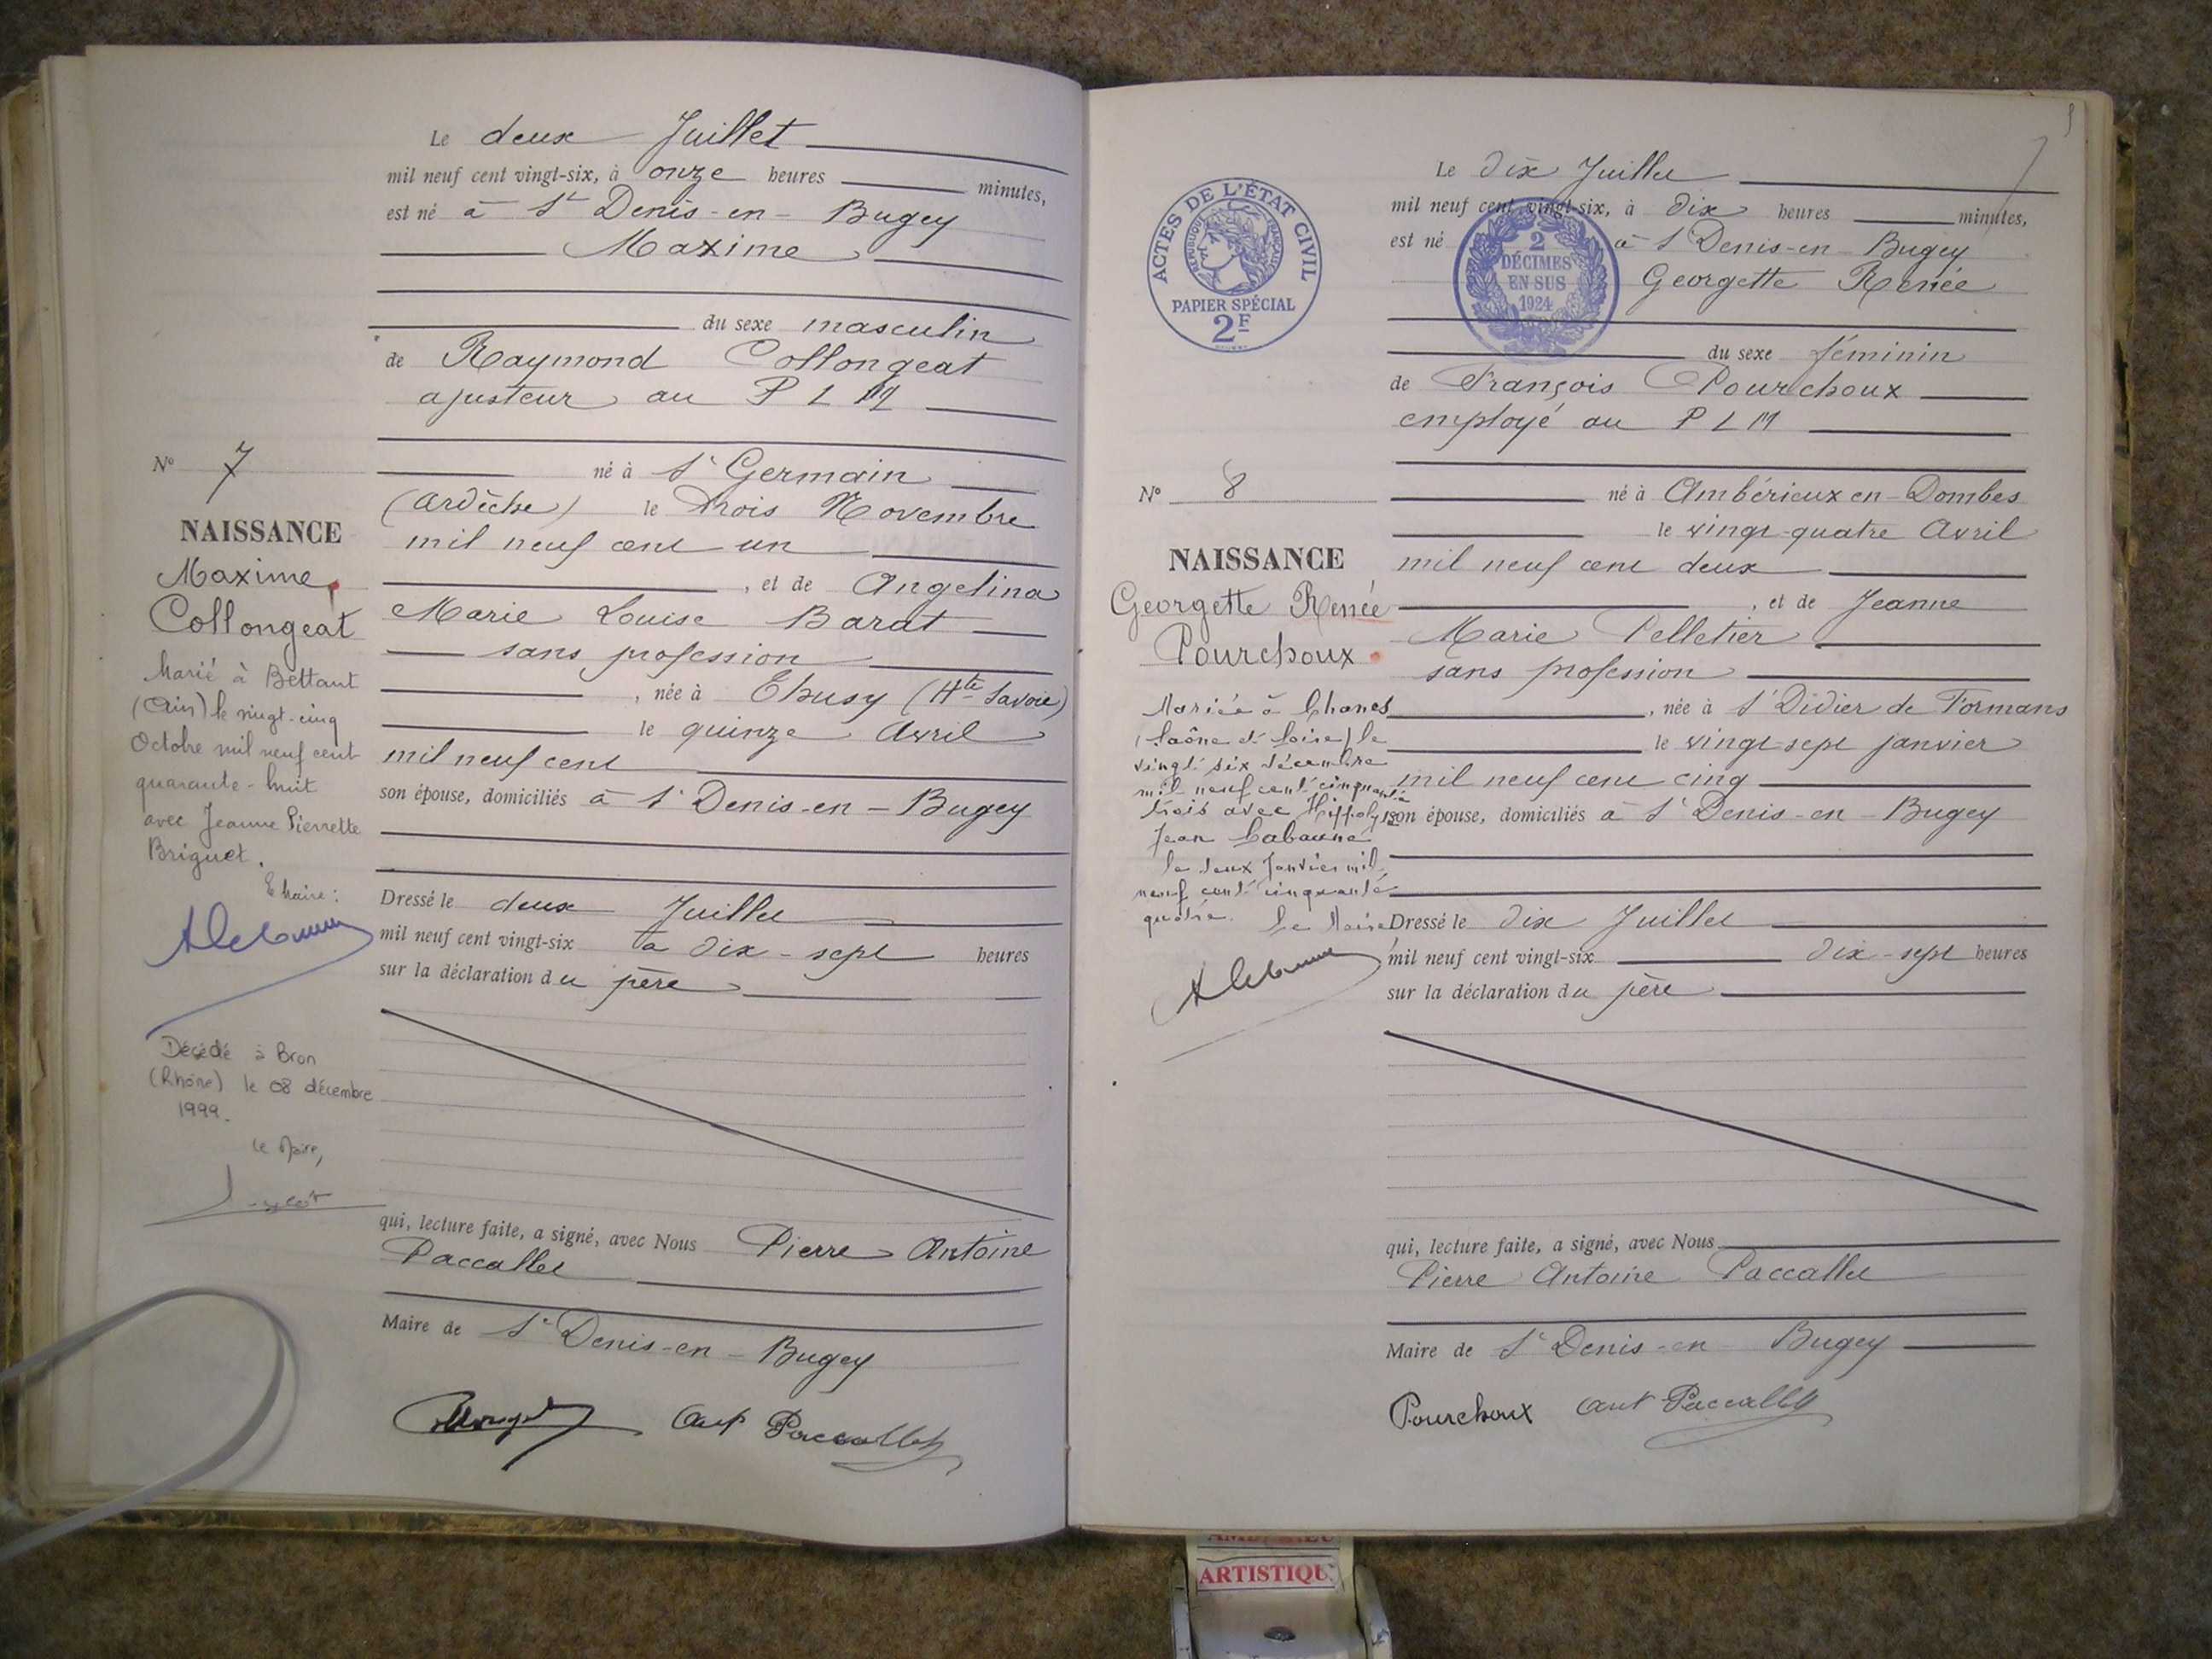 Le deux Juillet
mil neuf cent vingt-six, à onze heures minutes,
est né à St Denis-en-Bugey
Maxime
du sexe masculin
de Raymond Collongeat
ajusteur au P L M
né à St Germain
(Ardèche) le trois Novembre
mil neuf cent un
, et de Angelina
Marie Louise Barat
sans profession
, née à Thusy (Hte Savoie)
le quinze Avril
mil neuf cent
son épouse, domiciliés à St Denis-en-Bugey
Dressé le deux Juillet
mil neuf cent vingt-six à dix-sept heures
sur la déclaration du père
qui, lecture faite, a signé, avec Nous Pierre Antoine
Paccallet
Maire de St Denis-en-Bugey
Ant Paccallet
No 7
NAISSANCE
Maxime
Collongeat
Marié à Bettant
(Ain) le vingt-cinq
Octobre mil neuf cent
quarante-huit
avec Jeanne Pierrette
Briguet.
Le Maire:
Décédé à Bron
(Rhône) le 08 décembre
1999.
Le Maire,
ACTES DE L'ÉTAT CIVIL
RÉPUBLIQUE FRANÇAISE
PAPIER SPÉCIAL
2F
2
DÉCIMES
EN SUS
1924
Le dix Juillet
mil neuf cent vingt-six, à dix heures minutes,
est né à St Denis-en-Bugey
Georgette Renée
du sexe féminin
de François Pourchoux
employé au P L M
né à Ambérieux en-Dombes
le vingt-quatre Avril
mil neuf cent deux
, et de Jeanne
Marie Pelletier
sans profession
, née à St Didier de Formans
le vingt-sept janvier
mil neuf cent cinq
son épouse, domiciliés à St Denis-en-Bugey
Dressé le dix Juillet
mil neuf cent vingt-six dix-sept heures
sur la déclaration du père
qui, lecture faite, a signé, avec Nous
Pierre Antoine Paccallet
Maire de St Denis-en-Bugey
Pourchoux Ant Paccallet
No 8
NAISSANCE
Georgette Renée
Pourchoux
Mariée à Chanes
(Saône et Loire) le
vingt six décembre
mil neuf cent cinquante
trois avec Hippolyte
Jean
le deux Janvier mil
neuf cent cinquante
quatre. Le Maire
ARTISTIQU